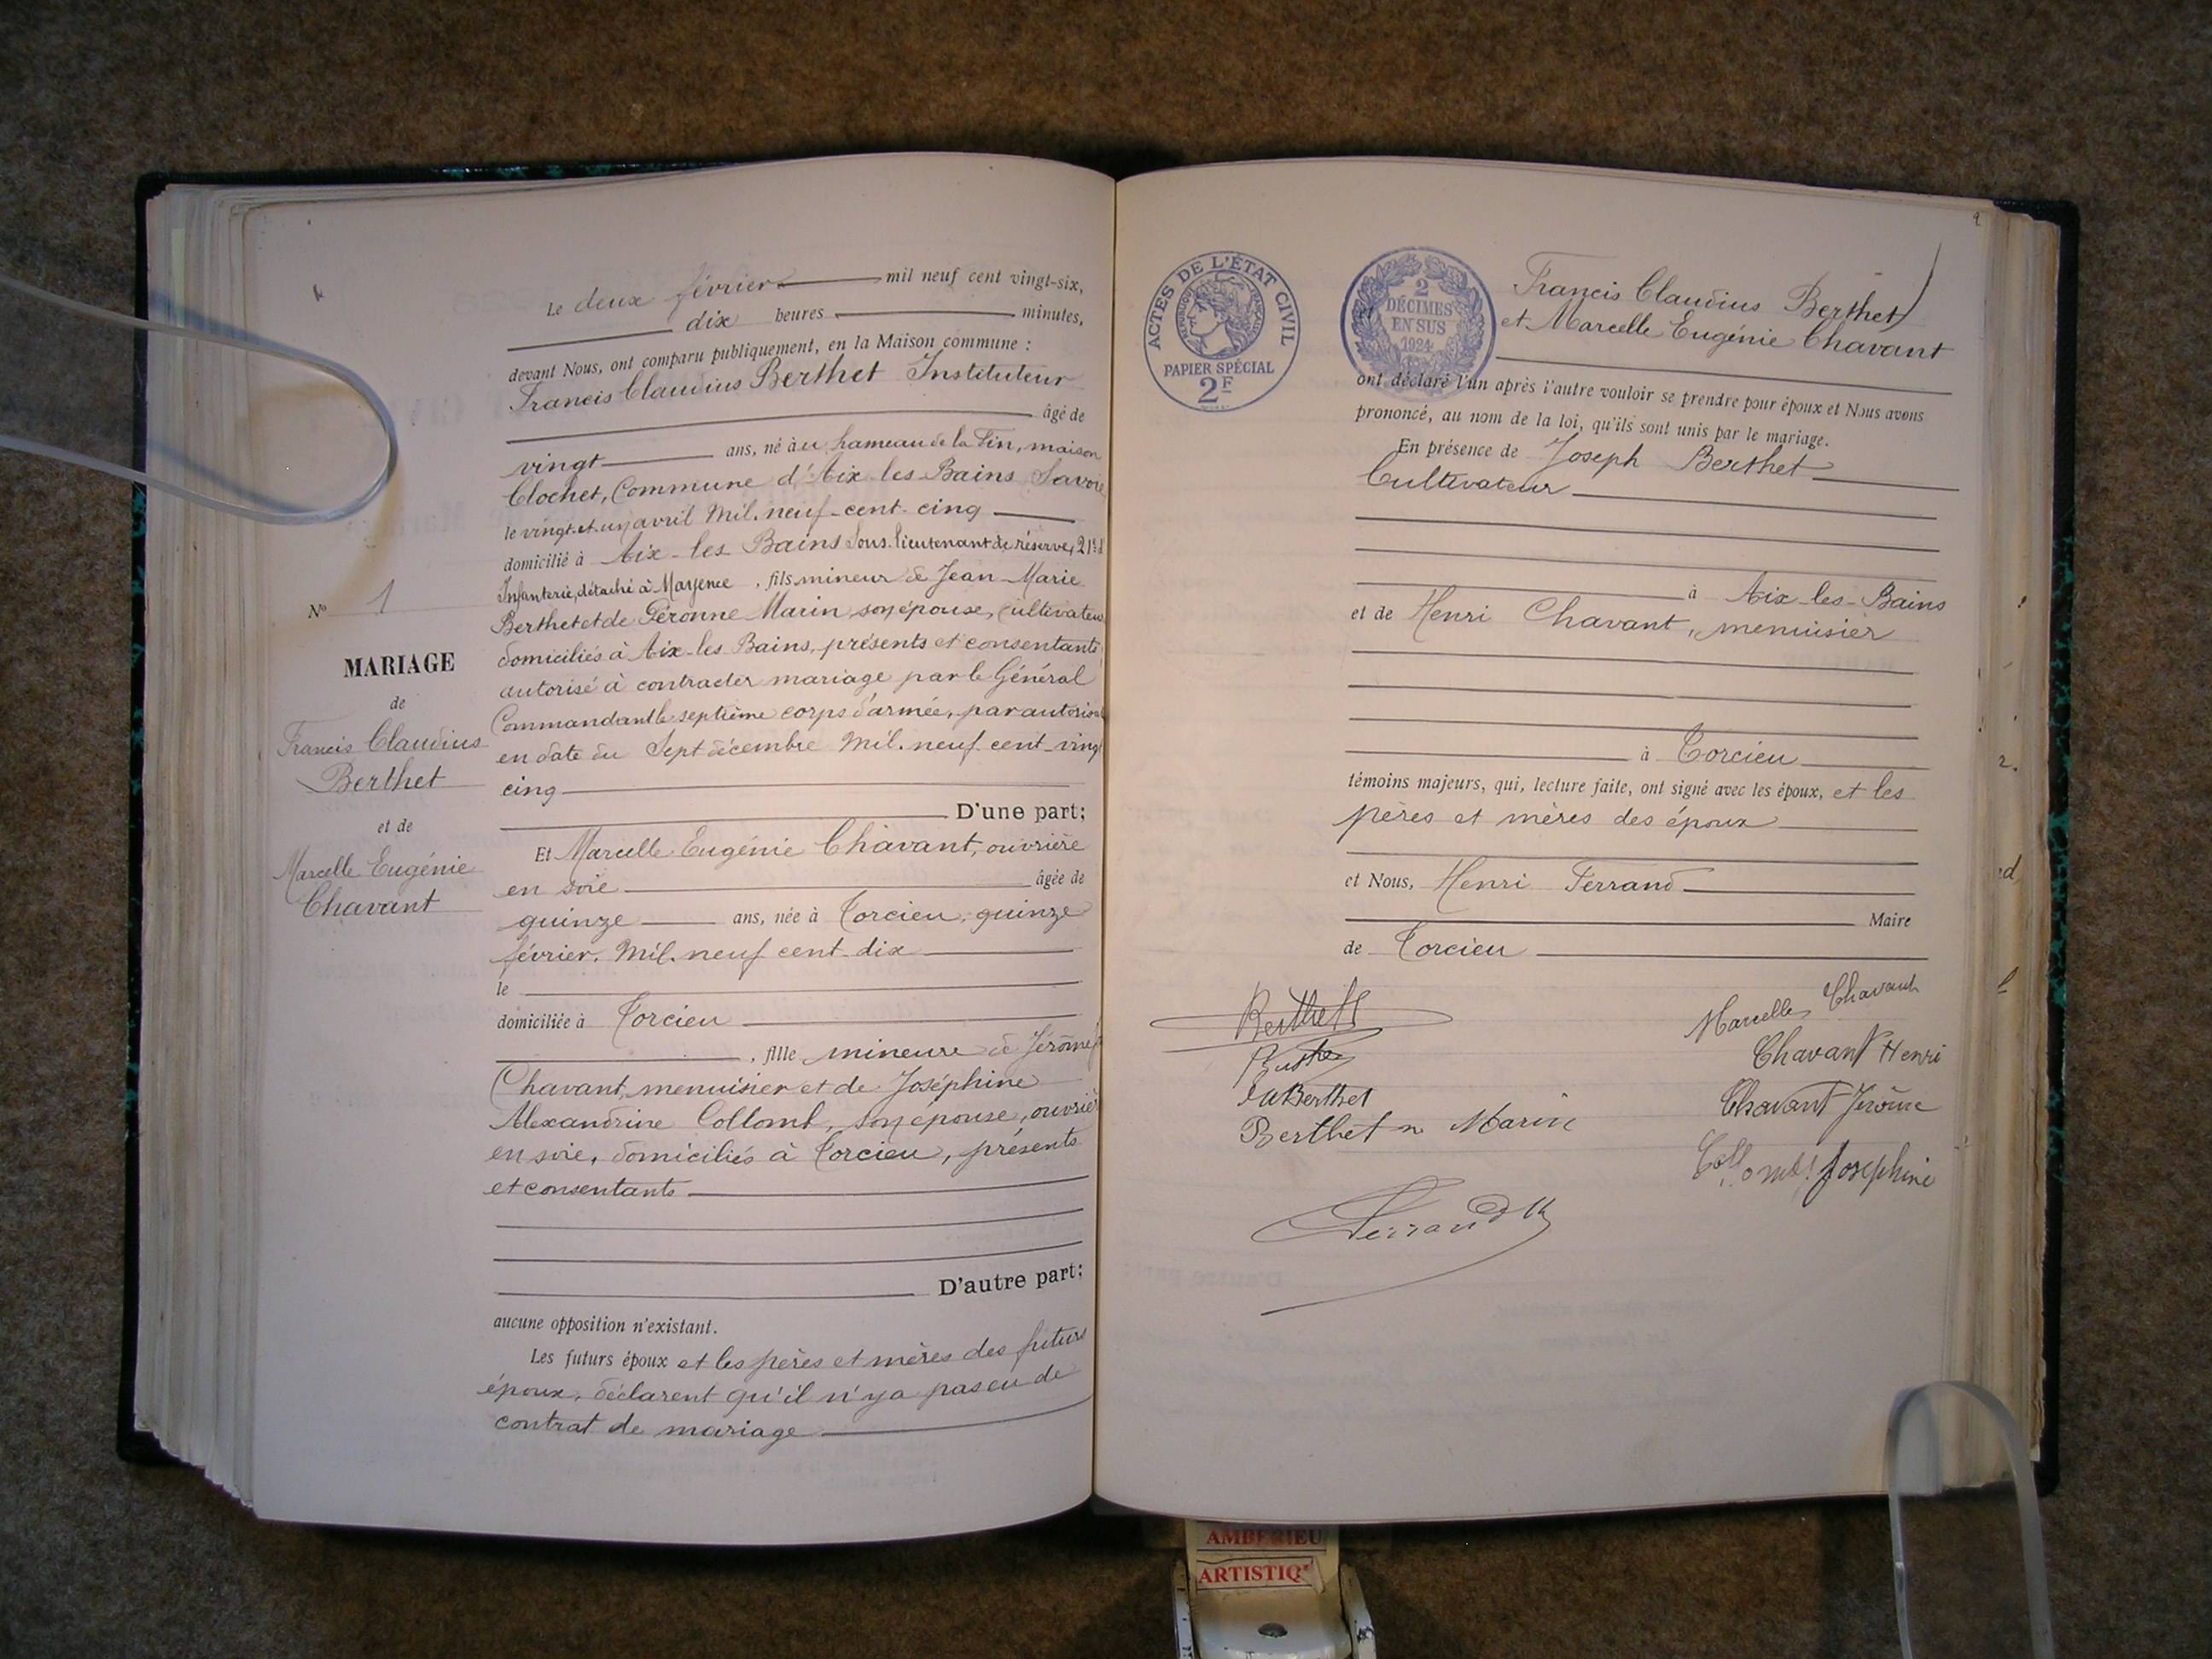 N° 1
MARIAGE
de
Francis Claudius
Berthet
et de
Marcelle Eugénie
Chavant
Le deux février mil neuf cent vingt-six,
dix heures minutes,
devant Nous, ont comparu publiquement, en la Maison commune :
Francis Claudius Berthet Instituteur
âgé de
vingt ans, né à u hameau de la Fin, maison
Clochet, Commune d'Aix-les-Bains Savoie
le vingt-et-un avril Mil-neuf-cent-cinq
domicilié à Aix-les Bains Sous-lieutenant de réserve,
Infanterie, détaché à Mayence, fils mineur de Jean-Marie
Berthet et de Féronne Marin son épouse, cultivateurs
domiciliés à Aix-les Bains, présents et consentants
autorisé à contracter mariage par le Général
Commandant le septième corps d'armée, par
en date du Sept décembre Mil-neuf cent-vingt
cinq
D'une part;
Et Marcelle Eugénie Chavant, ouvrière
en soie âgée de
quinze ans, née à Torcieu, quinze
février, Mil-neuf cent-dix
le
domiciliée à Torcieu
, fille mineure de Jérôme
Chavant, menuisier et de Joséphine
Alexandrine Collomb, son épouse, ouvrière
en soie, domiciliés à Torcieu, présents
et consentants
D'autre part;
aucune opposition n'existant.
Les futurs époux et les pères et mères des futurs
époux, déclarent qu'il n'y a pas eu de
contrat de mariage
ACTES DE L'ÉTAT CIVIL
RÉPUBLIQUE FRANÇAISE
PAPIER SPÉCIAL
2F
2
DÉCIMES
EN SUS
1924
Francis Claudius Berthet
et Marcelle Eugénie Chavant
ont déclaré l'un après l'autre vouloir se prendre pour époux et Nous avons
prononcé, au nom de la loi, qu'ils sont unis par le mariage.
En présence de Joseph Berthet
Cultivateur
à Aix-les-Bains
et de Henri Chavant, menuisier
à Torcieu
témoins majeurs, qui, lecture faite, ont signé avec les époux, et les
pères et mères des époux
et Nous, Henri Ferrand
Maire
de Torcieu
Berthet
Marcelle Chavant
Chavant Henri
Berthet
Chavant Jérôme
Berthet n Marin
Collomb Josephine
Ferrand H
AMBERIEU
ARTISTIQ